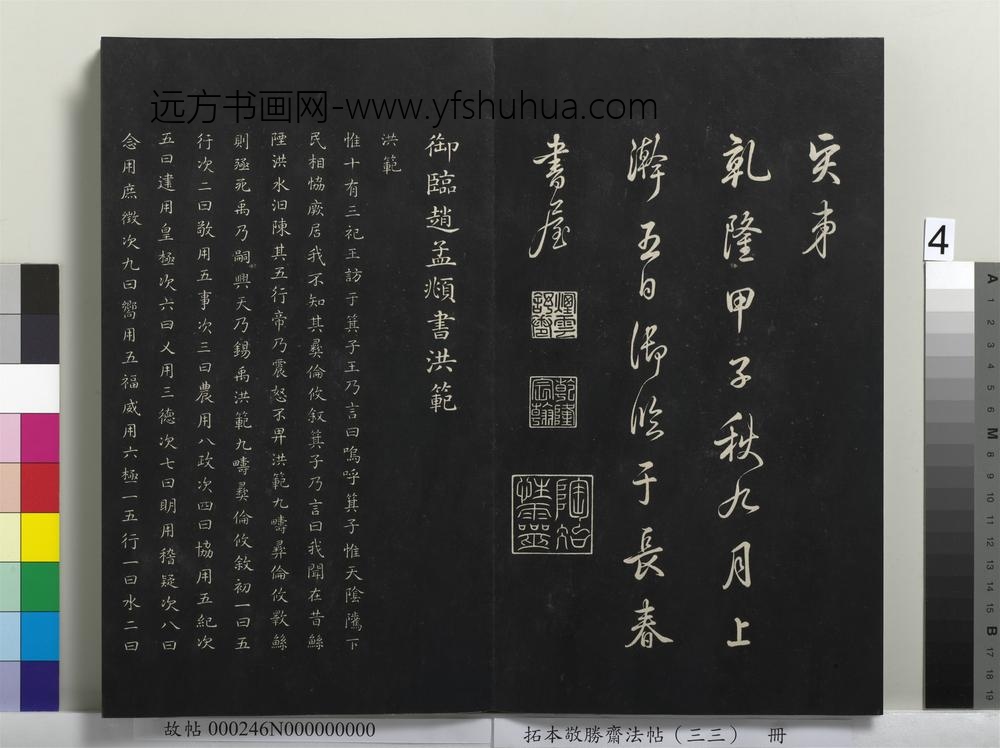 远方书画网-www.yfshuhua.com
乾隆甲子秋九月上
澣五日御臨于長春
書屋
乾隆宸翰
陶冶性靈
御臨趙孟頫書洪範
洪範
惟十有三祀王訪于箕子王乃言曰嗚呼箕子惟天陰隲下
民相恊厥居我不知其彞倫攸叙箕子乃言曰我聞在昔鯀
陻洪水汩陳其五行帝乃震怒不畀洪範九疇彞倫攸斁鯀
則殛死禹乃嗣興天乃錫禹洪範九疇彞倫攸敘初一曰五
行次二曰敬用五事次三曰農用八政次四曰協用五紀次
五曰建用皇極次六曰乂用三德次七曰明用稽疑次八曰
念用庶徵次九曰嚮用五福威用六極一五行一曰水二曰
4
A 1 2 3 4 5 6 M 8 9 10 11 12 13 14 15 B 17 18 19
故帖 000246N000000000
拓本敬勝齋法帖（三三） 冊